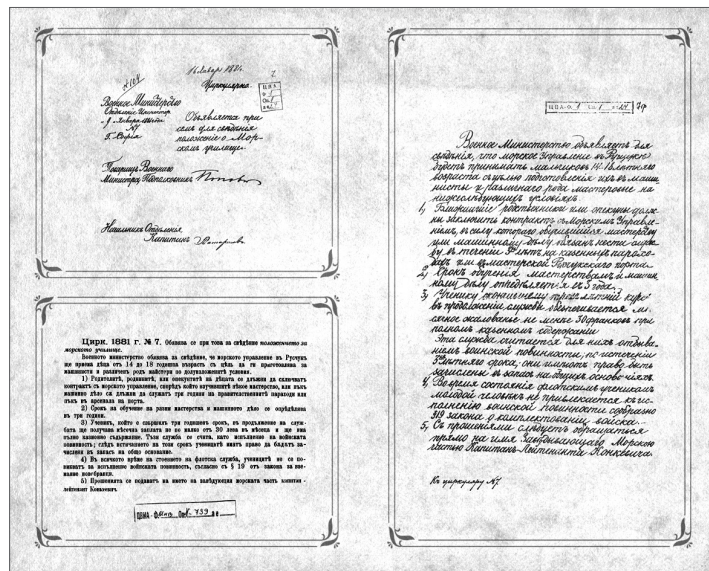 № 104
16 Январ 1881
Циркулярно.
Ц П А
Военное Министерство
Отделение
9 Января
№ 7
Г. София
Объявляется при
семъ для сведѣния
положение о Мор-
скомъ училище.
Товарищъ Военнаго
Министра, Подполковникъ Попов
Начальникъ Отделения,
Капитанъ
Цирк. 1881 г. № 7. Обявява се при това за свѣдѣние положението за
морското училище.
Военното министерство обявява за свѣдѣние, че морското управление въ Русчукъ
ще приема дѣца отъ 14 до 18 годишна възрасть съ цѣль да ги приготовлява за
машинисти и различенъ родъ майстори по долуизложенитѣ условия.
1) Родителитѣ, роднинитѣ, или опекунитѣ на дѣцата сѫ длъжни да сключватъ
контрактъ съ морското управление, споредъ който изучившитѣ нѣкое мастерство, или пъкъ
машинно дѣло сѫ длъжни да служатъ три години на правителственнитѣ параходи или
пъкъ въ арсенала на порта.
2) Срокъ за обучение на разни мастерства и машинното дѣло се опрѣдѣлява
въ три години.
3) Ученикъ, който е свършилъ тригодишенъ срокъ, въ продължение на служ-
бата ще получава мѣсечна заплата не по малко отъ 30 лева въ мѣсеца и ще има
пълно казенно съдържание. Тъзи служба се счита, като испълнение на войнската
повинность; слѣдъ истичанието на този срокъ ученицитѣ иматъ право да бѫдатъ за-
числени въ запасъ на общо основание.
4) Въ всичкото врѣме на стоението на флотска служба, ученицитѣ не се по-
викватъ за исплънение войнската повинность, съгласно съ § 19 отъ закона за взе-
мание новобранци.
5) Прошенията се подаватъ на името на завѣдующия морската часть капитан -
лейтенант Конкевичъ
ЦВМА
Военное Министерство объявляетъ для
сведѣния, что морское Управление въ Рущукѣ
будетъ принимать мальчиковъ 14-18 летняго
возраста съ целью подготовления ихъ въ маши-
нисты и разнаго рода мастеровые на
нижеследующихъ условияхъ
1, Ближайшие родственники или опекуны долж-
ны заключить контрактъ съ морскимъ Управле-
ниемъ, въ силу котораго обучившийся мастерству
или машинному делу обязанъ нести служ-
бу въ течении 3 летъ на казенныхъ парохо-
дахъ или въ мастерской Рущукскаго порта.
2, Срокъ обучения мастерствамъ и машин-
ному делу определяется въ 3 года.
3, Ученику окончившему трехлетний курсъ
въ продолжении службы обеспечивается ме-
сячное жалование не менее 30 франковъ при
полномъ казенномъ содержании
Эта служба считается для нихъ отбыва-
ниемъ воинской повинности, по истечении
3 летняго срока, они имеютъ право быть
зачислены въ запасъ на общихъ основанияхъ.
4, Во время состояния флотскимъ ученикомъ
молодой человекъ не привлекается къ ис-
полнению воинской повинности собразно
§19 закона о комплектовании войска.
5, Съ прошениями следуетъ обращаться
прямо на имя Заведывающаго Морскою
частью Капитанъ Лейтенанта Конкевича.
Къ циркуляру № 7.